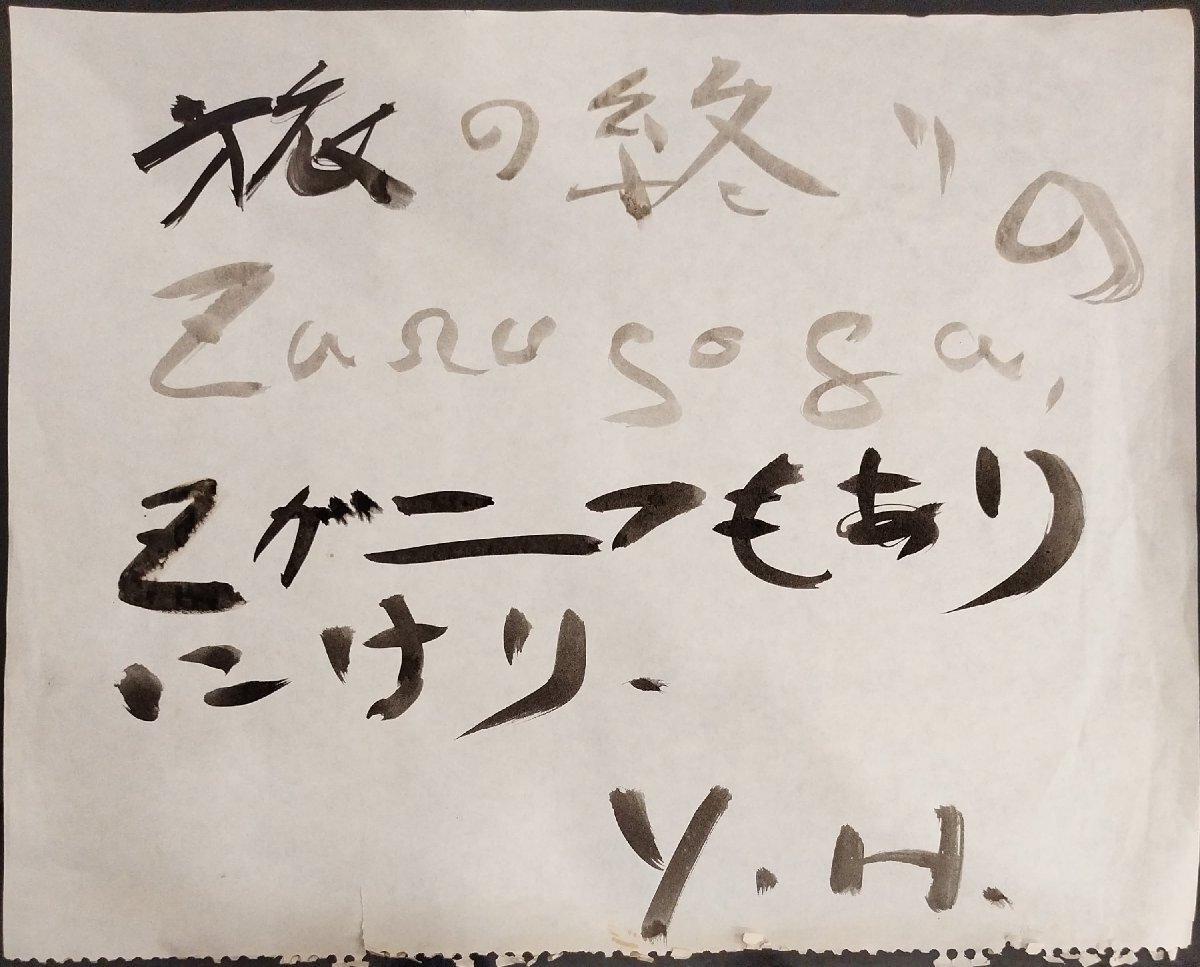 旅の終りの
Zaragoza,
Zが二つもあり
にけり.
Y.H.